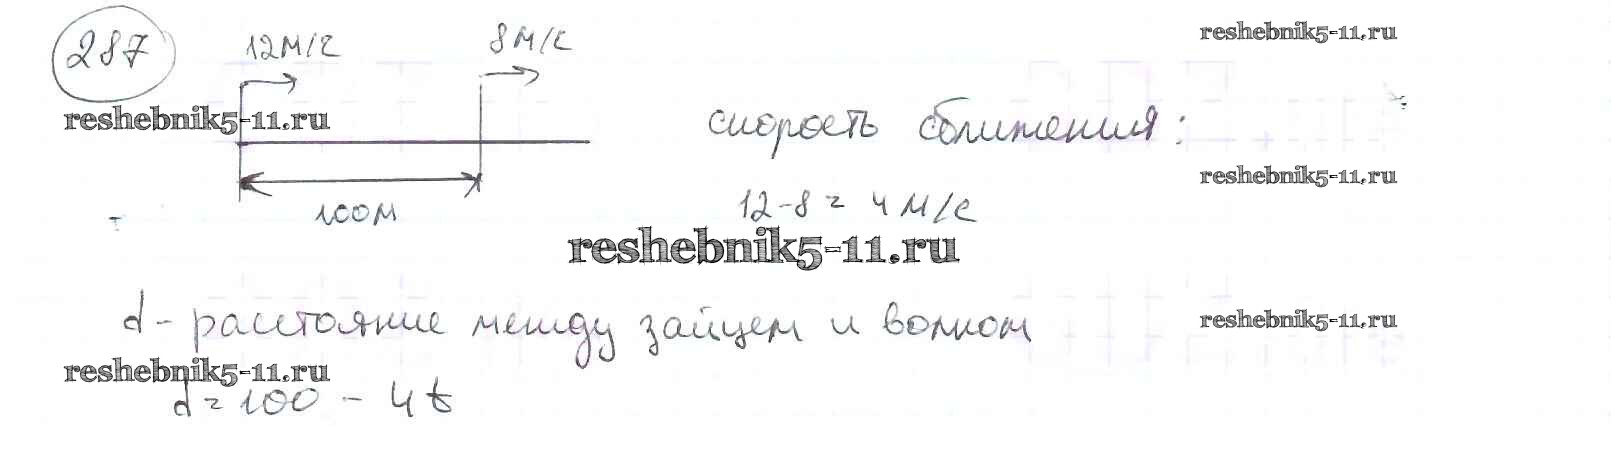 287
12м/с
8м/с
reshebnik5-11.ru
reshebnik5-11.ru
скорость сближения:
reshebnik5-11.ru
100м
12-8 = 4 м/с
reshebnik5-11.ru
d - расстояние между зайцем и волком
reshebnik5-11.ru
reshebnik5-11.ru
d = 100 - 4t